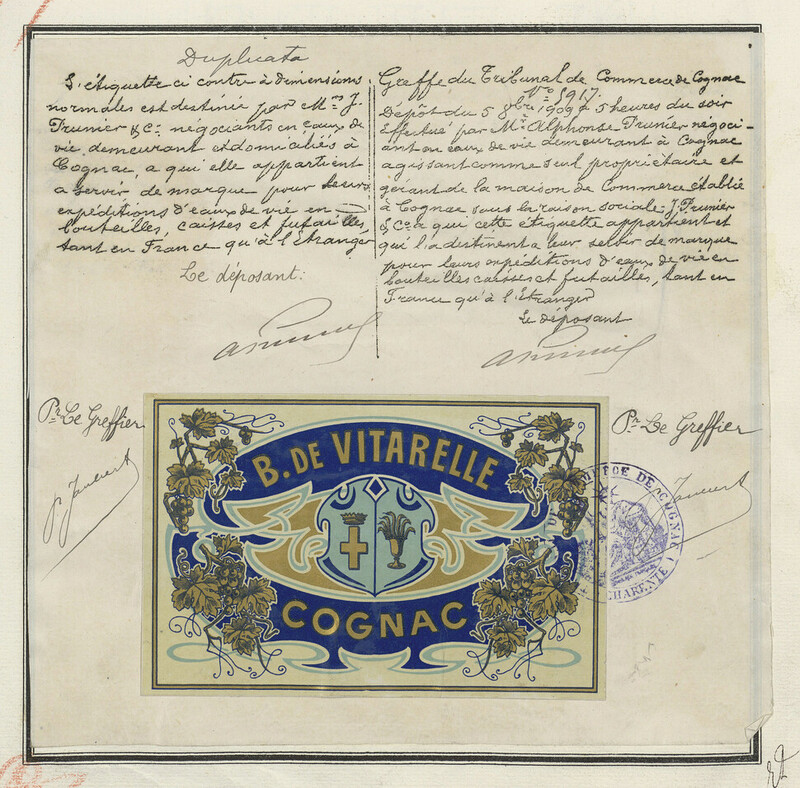 Duplicata
L'étiquette ci contre à dimensions
normales est destinée par Mrs J.
Prunier & Co négociants en eaux de
vie demeurant et domiciliés à
Cognac, a qui elle appartient
a servir de marque pour leurs
expéditions d'eaux de vie en
bouteilles, caisses et futailles
tant en France qu'à l'étranger
Le déposant:
Greffe du Tribunal de Commerce de Cognac
No 5917.
Dépôt du 5 9bre 1909 à 5 heures du soir
effectué par Mr Alphonse Prunier négoci-
ant en eaux de vie demeurant à Cognac
agissant comme seul propriétaire et
gérant de la maison de Commerce établie
à Cognac sous la raison sociale J. Prunier
& Co a qui cette étiquette appartient et
qui l'a destinent a leur servir de marque
pour leurs expéditions d'eaux de vie en
bouteilles caisses et futailles, tant en
France qu'à l'Etranger
Le déposant
Pr Le Greffier
Pr Le Greffier
B. DE VITARELLE
COGNAC
DE COGNAC
(CHARENTE)